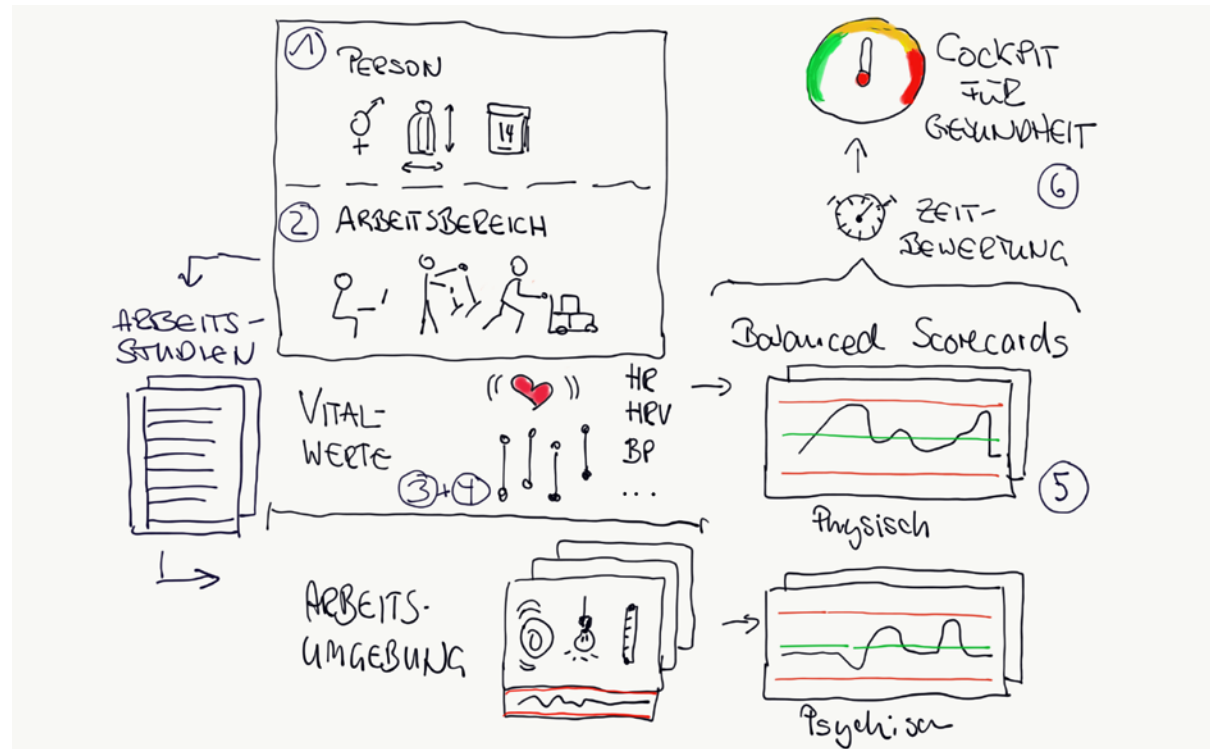 1 PERSON
14
2 ARBEITSBEREICH
ARBEITS-
STUDIEN
VITAL-
WERTE
3+4
HR
HRV
BP
...
ARBEITS-
UMGEBUNG
COCKPIT
FÜR
GESUNDHEIT
6
ZEIT-
BEWERTUNG
Balanced Scorecards
5
Physisch
Psychisch